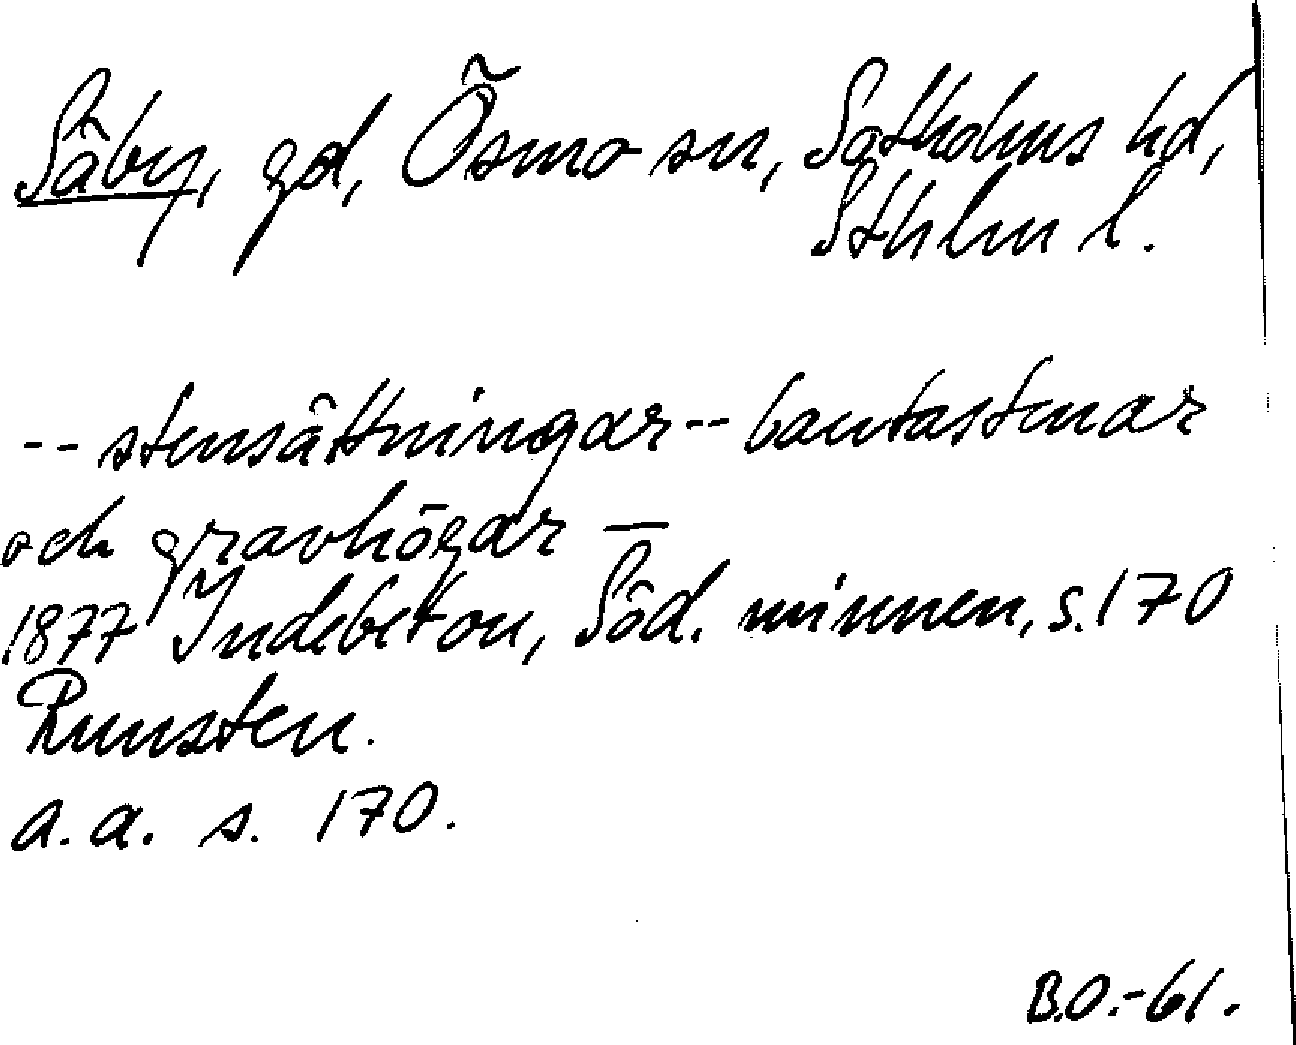 Säby, gd, Ösmo sn, Sotholms hd,
Sthlm l.
-- stensättningar -- bautastenar
och gravhögar —
1877 Indebetou, Söd. minnen, s. 170
Runsten.
a.a. s. 170.
B.O.-61.